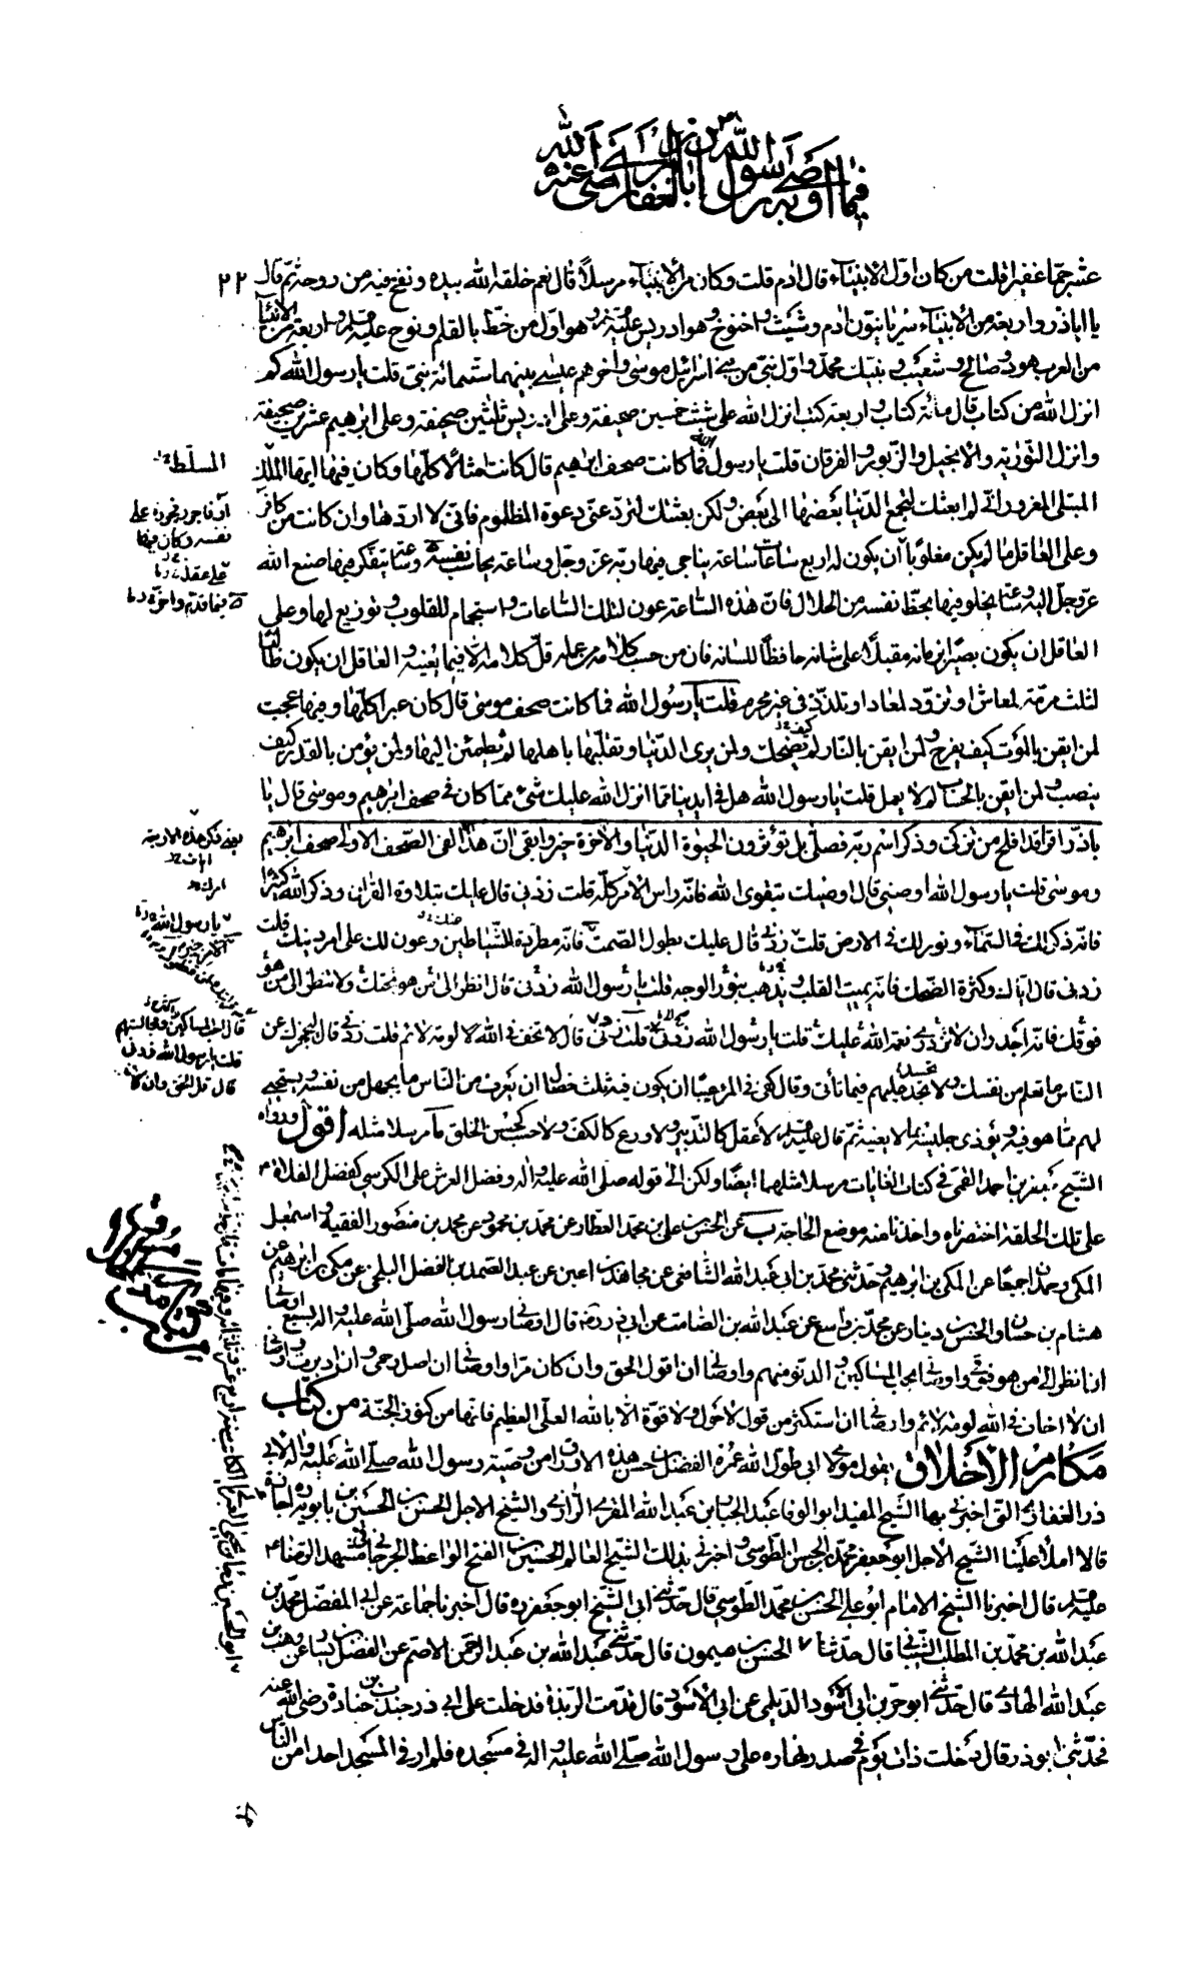 فيما أوصى به رسول الله من أبا ذر الغفاري رضي الله عنه
عشر جما غفيرا قلت من كان اول الانبياء قال ادم قلت وكان من الانبياء مرسلا قال نعم خلقه الله بيده ونفخ فيه من روحه ثم قال
٢٢
يا اباذر واربعة من الانبياء سريانيون ادم وشيث واخنوخ وهو ادريس عليه وهو اول من خط بالقلم ونوح عليه واربعة من الانبياء
من العرب هود وصالح وشعيب ونبيك محمد واول نبي من بني اسرائيل موسى واخرهم عيسى بينهما ستمائة نبي قلت يا رسول الله كم
انزل الله من كتاب قال مائة كتاب واربعة كتب انزل الله على شيث خمسين صحيفة وعلى ادريس ثلثين صحيفة وعلى ابرهيم عشرين صحيفة
وانزل التورية والانجيل والزبور والفرقان قلت يا رسول الله فما كانت صحف ابرهيم قال كانت امثالا كلها وكان فيها ايها الملك
المسلط
المبتلى المغرور اني لم ابعثك لتجمع الدنيا بعضها الى بعض ولكن بعثتك لترد عني دعوة المظلوم فاني لا اردها وان كانت من كافر
او فاجر فجوره على نفسه وكان فيها
وعلى العاقل ما لم يكن مغلوبا ان يكون له اربع ساعات ساعة يناجي فيها ربه عز وجل وساعة يحاسب نفسه وساعة يتفكر فيها صنع الله
على عقله
عز وجل اليه وساعة يخلو فيها بحظ نفسه من الحلال فان هذه الساعة عون لتلك الساعات واستجمام للقلوب وتوزيع لها وعلى
فيما قدم واخر
العاقل ان يكون بصيرا بزمانه مقبلا على شانه حافظا للسانه فان من حسب كلامه من عمله قل كلامه الا فيما يعنيه والعاقل ان يكون طالبا
لثلث مرمة لمعاش او تزود لمعاد او تلذذ في غير محرم قلت يا رسول الله فما كانت صحف موسى قال كان عبرا كلها وفيها عجبت
لمن ايقن بالموت كيف يفرح ولمن ايقن بالنار لم يضحك ولمن يرى الدنيا وتقلبها باهلها لم يطمئن اليها ولمن يؤمن بالقدر كيف
ينصب ولمن ايقن بالحساب لم لا يعمل قلت يا رسول الله هل في ايدينا مما انزل الله عليك شيء مما كان في صحف ابرهيم وموسى قال يا
باذر اقرا قد افلح من تزكى وذكر اسم ربه فصلى بل تؤثرون الحيوة الدنيا والاخرة خير وابقى ان هذا لفي الصحف الاولى صحف ابرهيم
وموسى قلت يا رسول الله اوصني قال اوصيك بتقوى الله فانه راس الامر كله قلت زدني قال عليك بتلاوة القران وذكر الله كثيرا
يا رسول الله
فانه ذكر لك في السماء ونور لك في الارض قلت زدني قال عليك بطول الصمت فانه مطردة للشياطين وعون لك على امر دينك قلت
زدني قال اياك وكثرة الضحك فانه يميت القلب ويذهب بنور الوجه قلت يا رسول الله زدني قال انظر الى من هو تحتك ولا تنظر الى من هو
فوقك فانه اجدر ان لا تزدري نعمة الله عليك قلت يا رسول الله زدني قلت زدني قال لا تخف في الله لومة لائم قلت زدني قال ليحجزك عن
قال احب المساكين ومجالستهم
قلت يا رسول الله زدني
قال قل الحق وان كان
الناس ما تعلم من نفسك ولا تجد عليهم فيما تأتي وقال كفى بالمرء عيبا ان يكون فيه ثلث خصال ان يعرف من الناس ما يجهل من نفسه ويستحيي
لهم مما هو فيه ويؤذي جليسه بما لا يعنيه ثم قال عليه لا عقل كالتدبير ولا ورع كالكف ولا حسب كحسن الخلق مرسلا مثله اقول ورواه
الشيخ جعفر بن احمد القمي في كتاب الغايات مرسلا مثلهما ايضا ولكن الى قوله صلى الله عليه واله وفضل العرش على الكرسي كفضل الفلاة
على تلك الحلقة اختصرناه واخذنا منه موضع الحاجة عن الحسن بن علي بن محمد العطار عن محمد بن محمود عن محمد بن منصور الفقيه واسمعيل
المكي وحمدان جميعا عن المكي بن ابرهيم وحدثني محمد بن ابي عبد الله الشافعي عن مجاهد بن اعين عن عبد الصمد بن الفضل البلخي عن مكي بن ابرهيم عن
هشام بن حسان والحسن بن دينار عن محمد بن واسع عن عبد الله بن الصامت عن ابي ذر ره قال اوصاني رسول الله صلى الله عليه واله بسبع اوصاني
ان انظر الى من هو دوني واوصاني بحب المساكين والدنو منهم واوصاني ان اقول الحق وان كان مرا واوصاني ان اصل رحمي وان ادبرت واوصاني
ان لا اخاف في الله لومة لائم واوصاني ان استكثر من قول لا حول ولا قوة الا بالله العلي العظيم فانها من كنوز الجنة من كتاب
مكارم الاخلاق يقول مولاي ابي طول الله عمره الفضل بن الحسن هذه الاوراق من وصية رسول الله صلى الله عليه واله لابي
ذر الغفاري التي اخبرني بها الشيخ المفيد ابو الوفا عبد الجبار بن عبد الله المقري الرازي والشيخ الاجل الحسن بن الحسين بن بابويه ره اجازة
قالا املا علينا الشيخ الاجل ابو جعفر محمد بن الحسن الطوسي واخبرني بذلك الشيخ العالم الحسين بن الفتح الواعظ الجرجاني في مشهد الرضا
عليه قال اخبرنا الشيخ الامام ابو علي الحسن بن محمد الطوسي قال حدثني ابي الشيخ ابو جعفر ره قال اخبرنا جماعة عن ابي المفضل محمد بن
عبد الله بن محمد بن المطلب الشيباني قال حدثنا الحسن بن ميمون قال حدثني عبد الله بن عبد الرحمن الاصم عن الفضل بن يسار عن وهب بن
عبد الله الهنائي قال حدثني ابو حرب بن ابي الاسود الدئلي عن ابي الاسود قال قدمت الربذة فدخلت على ابي ذر جندب بن جنادة رضي الله عنه
فحدثني ابو ذر قال دخلت ذات يوم في صدر نهاره على رسول الله صلى الله عليه واله في مسجده فلم ار في المسجد احدا من الناس